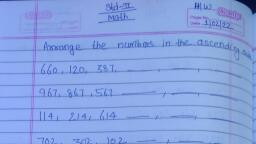 Std-II
H.W
Math
Date 1/02/22
Arrange the numbers in the ascending
660, 120, 387, ___, ___, ___
967, 867, 567 ___, ___, ___
114, 214, 614 ___, ___, ___
702, 302, 102, ___, ___, ___